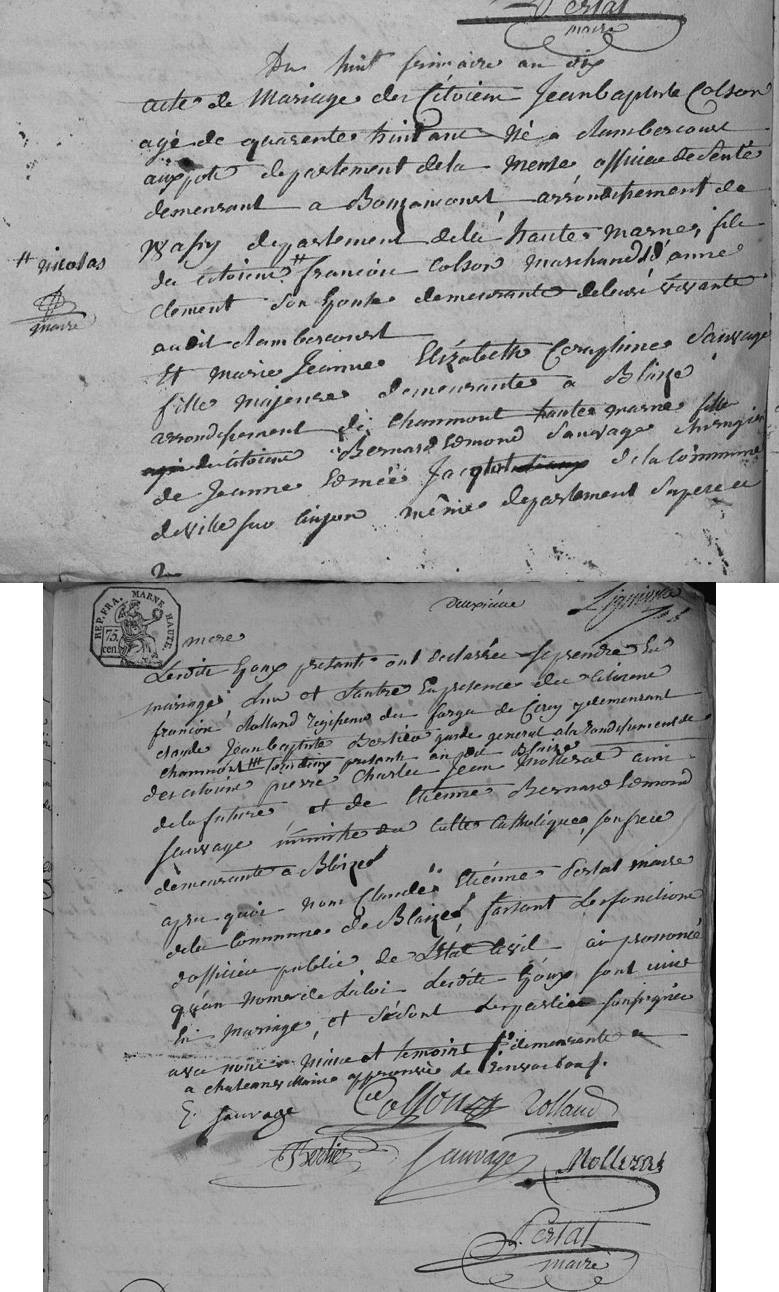 Pertat
maire
Du huit frimaire an dix
acte de Mariage des Citoiens Jean baptiste Colson
agé de quarente huit ans Né a Lambercourt
aux pots departement de la Meuse officier de Santé
demeurant a Bouzancourt arrondisement de
Vassy departement de la haute Marne, fils
du citoien # francois Colson Marchand et d'anne
# nicolas
maire
Clement son Epouse demeurante de leurs vivante
audit Lambercourt
Et Marie Jeanne Elizabeth Ceraphine Sauvage
fille majeure demeurante a Blaize
arrondisement de Chaumont haute marne fille
du citoiens Bernard Edmond Sauvage chirugien
de Jeanne Edmée de la Commune
de ville sur même departement Ses pere et
deuxieme
REP. FRA. MARNE HAUTE
75 cent.
mere
Lesdits Epoux presents ont declarée se prendre En
mariage, L'un et L'autre En presence des Citoiens
francois Rolland regiseur des forges de Cirey y demeurant
claude Jean baptiste Bertier garde general a la rondisement de
chaumont presents
des citoiens pierre Charles Jean Mollerat ami
de la future, et de Etienne Bernard Edmond
Sauvage ministre du Culte Catholique, son frere
demeurante a Blaize
apres quoi nous Claude Etienne Pertat maire
de la Commune de Blaize faisant Les fonctions
d'officier public de L'Etat Civil ai prononcé
qu'au nom de La loi Lesdits Epoux sont unis
En mariage, et Lesdits parties soussignée
avec nous maire et temoins demeurante a
a chateauvillain approuvée de
E. Sauvage Colson Rolland
Bertier Sauvage Mollerat
Pertat
maire